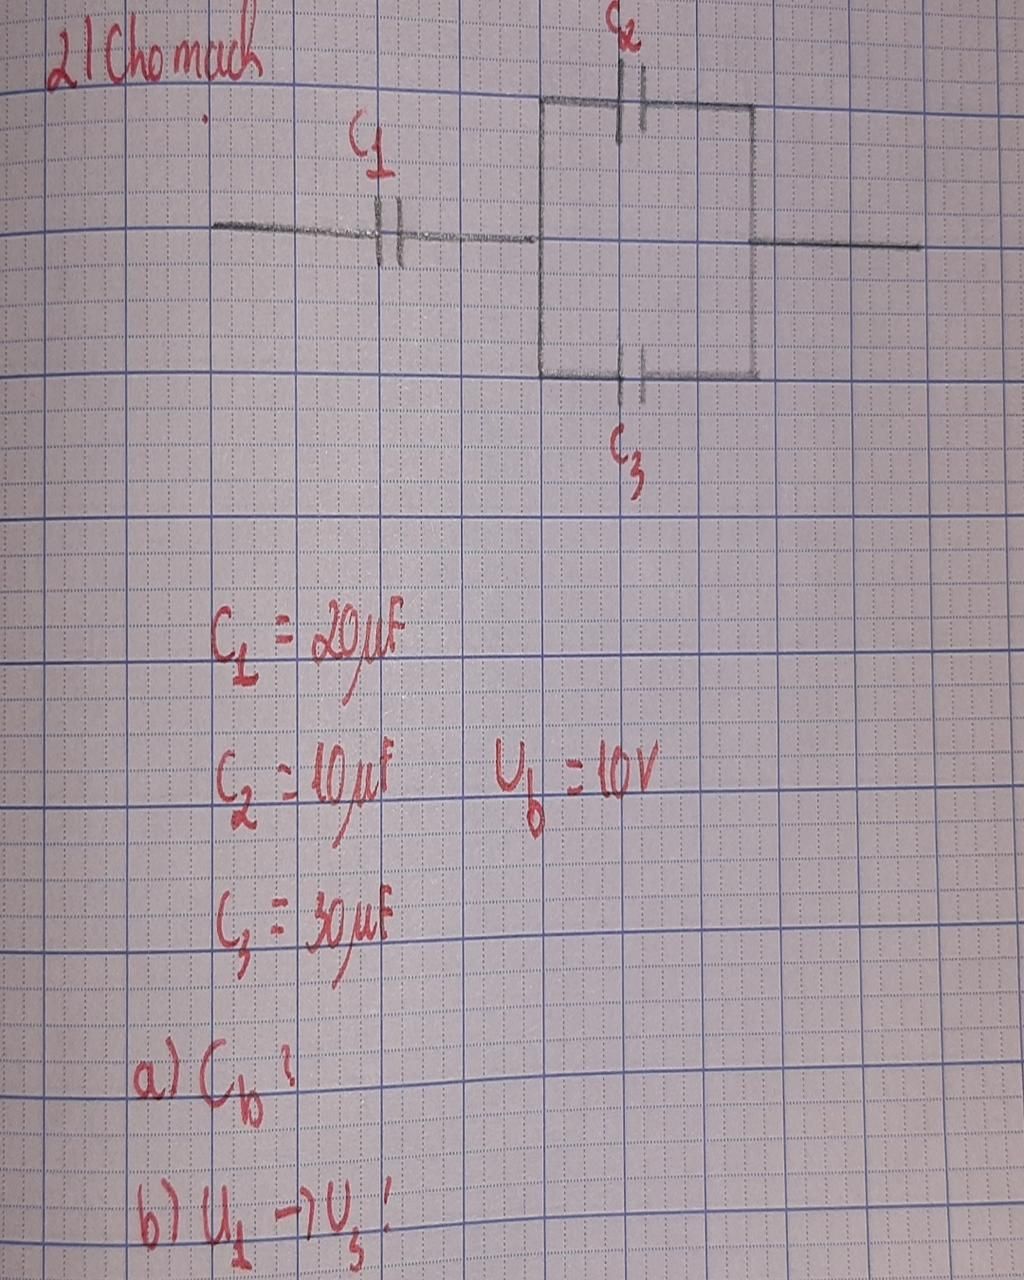 2/ Cho mạch
C2
C1
C3
C1 = 20μF
C2 = 10μF Ub = 10V
C3 = 30μF
a) Cb?
b) U1 → U3?